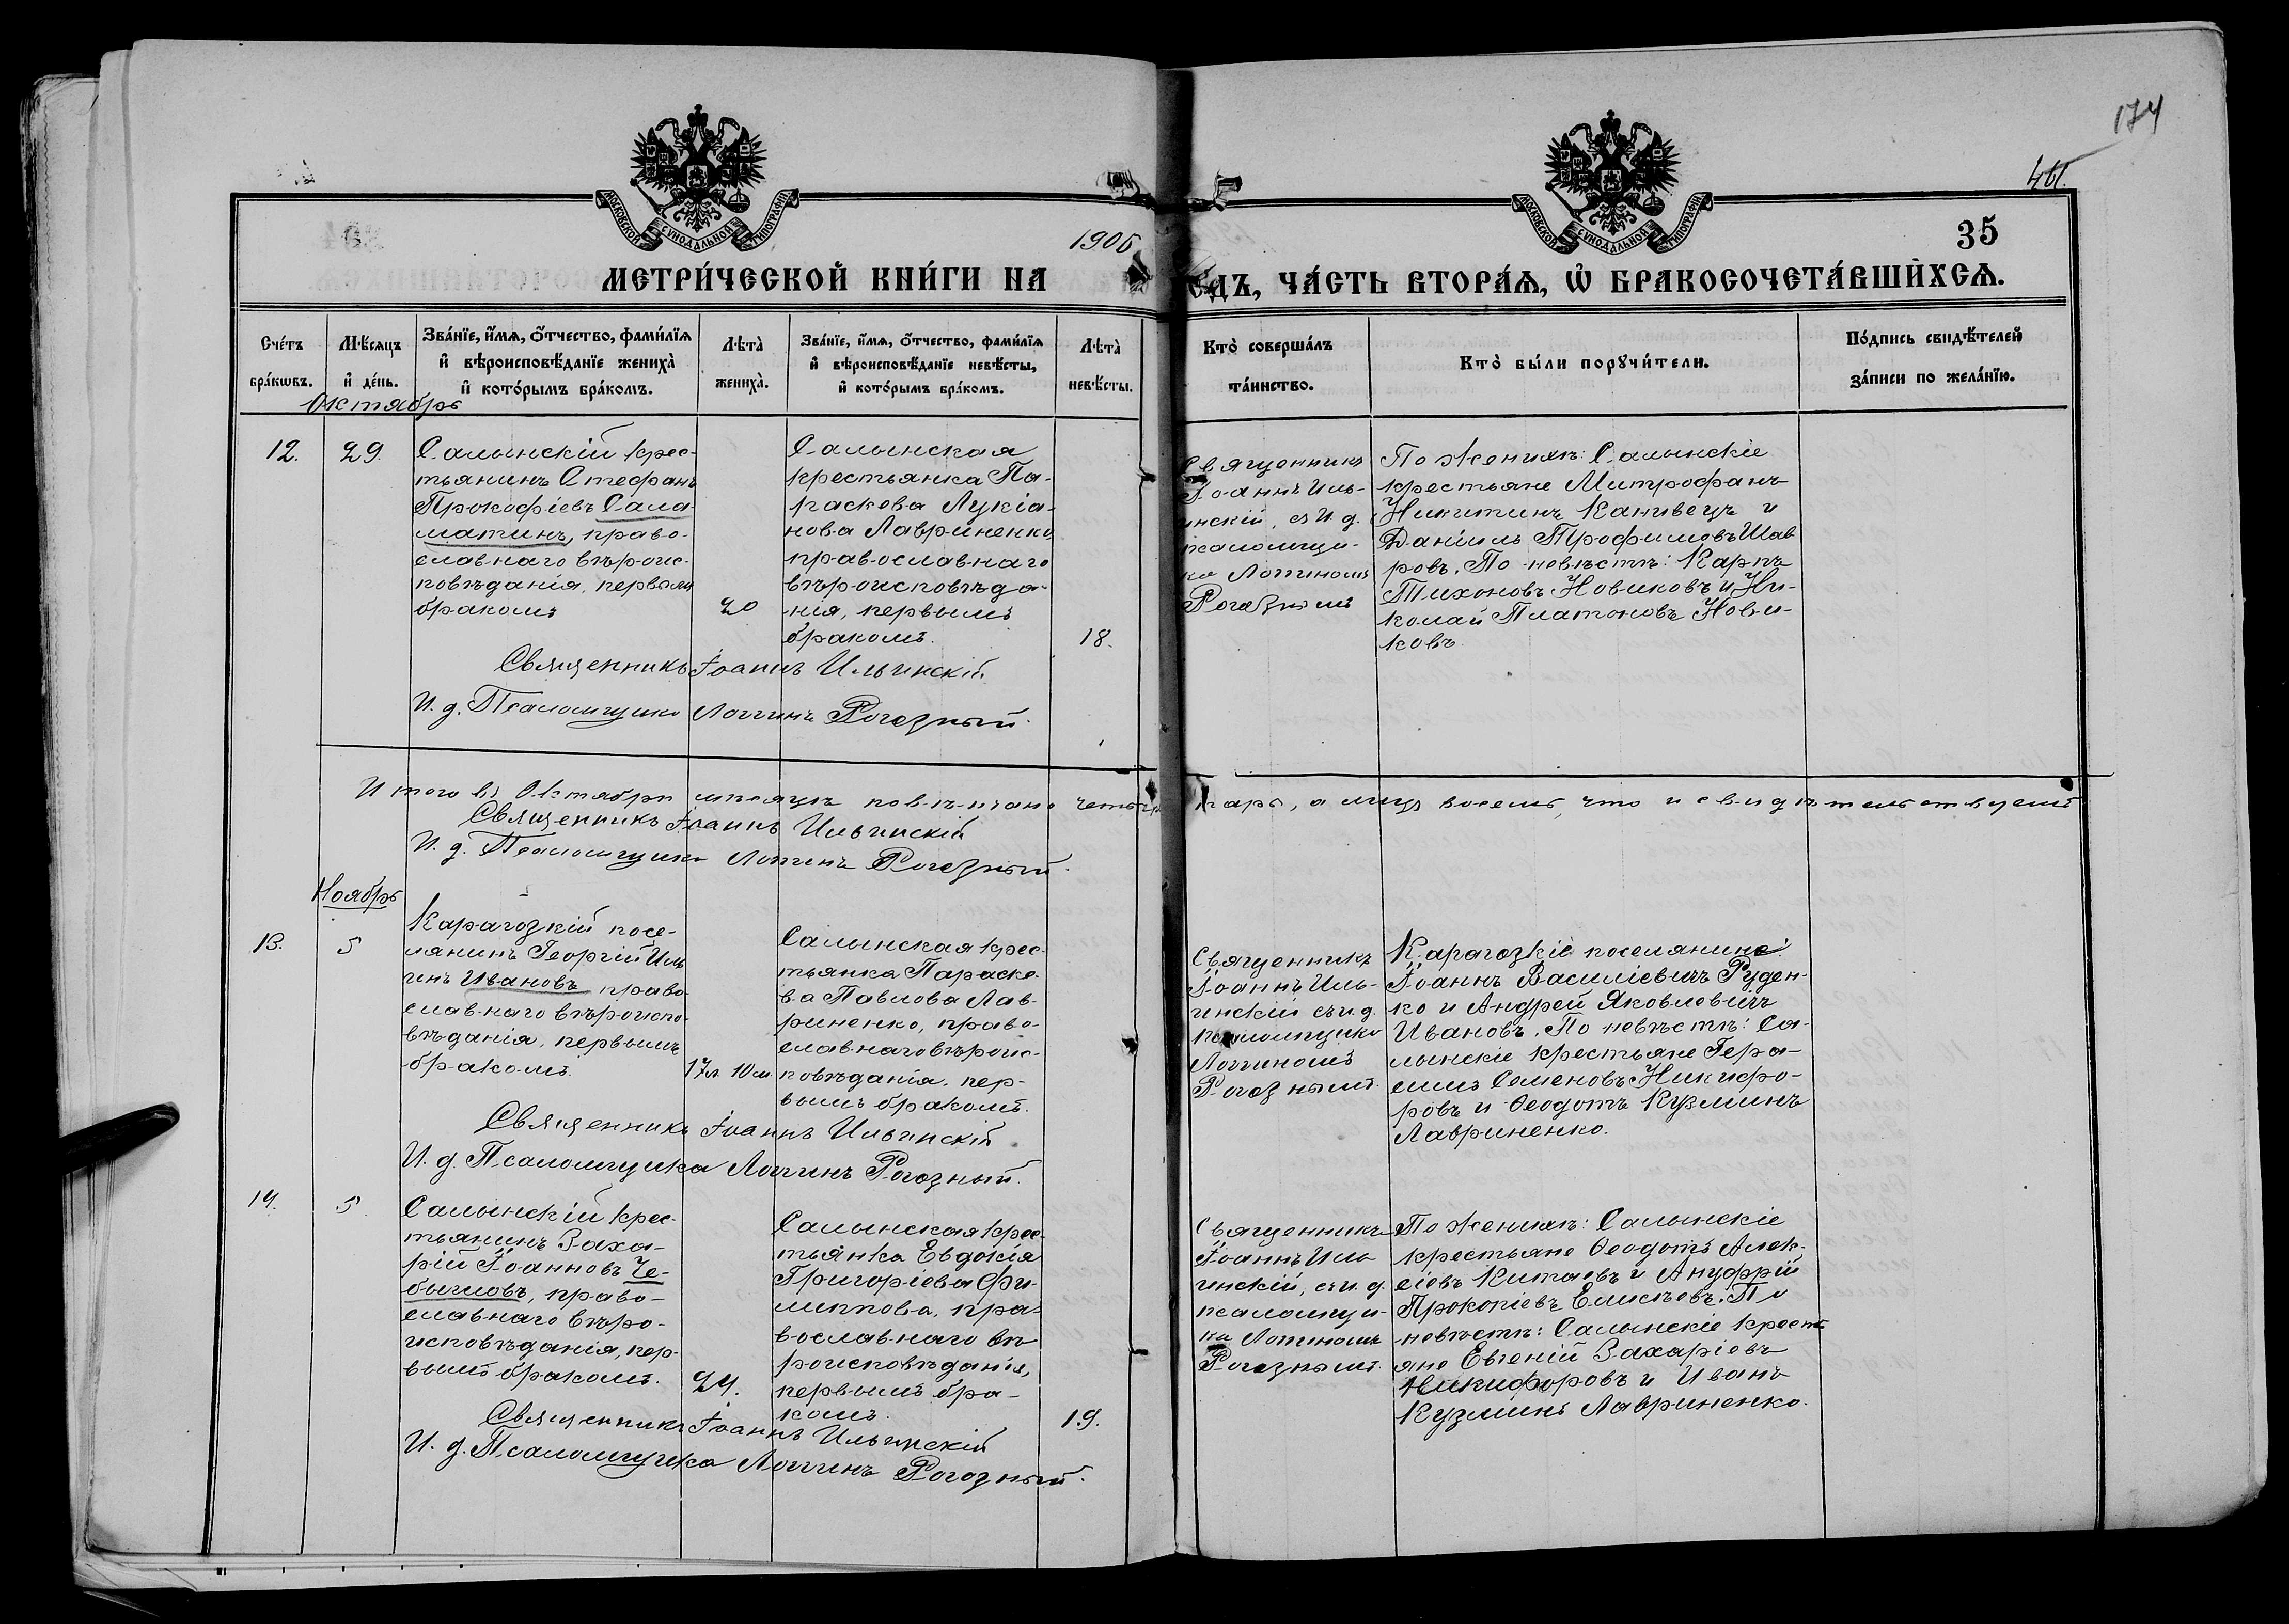 174
461.
МОСКОВСКОЙ СѴНОДАЛЬНОЙ ТИПОГРАФІИ.
МОСКОВСКОЙ СѴНОДАЛЬНОЙ ТИПОГРАФІИ.
1906
35
МЕТРИ́ЧЕСКОЙ КНИ́ГИ НА
ГОДЪ, ЧА́СТЬ ВТОРА́Ѧ, Ѡ҆ БРАКОСОЧЕТА́ВШИХСѦ.
Сче́тъ бра́кѡвъ.
Мѣ́сѧцъ и҆ де́нь.
Зва́нїе, и҆́мѧ, ѻ҆́тчество, фами́лїѧ и҆ вѣроисповѣ́данїе жениха̀ и҆ кото́рымъ бра́комъ.
Лѣта̀ жениха̀.
Зва́нїе, и҆́мѧ, ѻ҆́тчество, фами́лїѧ и҆ вѣроисповѣ́данїе невѣ́сты, и҆ кото́рымъ бра́комъ.
Лѣта̀ невѣ́сты.
Кто̀ соверша́лъ та́инство.
Кто̀ бы́ли порꙋчи́тели.
По́дпись свидѣ́телей за́писи по жела́нїю.
Октябрь
12.
29.
Салынскій крес-
тьянинъ Стефанъ
Прокофіевъ Сала
матинъ, право-
славнаго вѣроис-
повѣданія, первымъ
бракомъ
20
Салынская
крестьянка Па-
раскева Лукіа-
нова Лавриненко
православнаго
вѣроисповѣда-
нія, первымъ
бракомъ.
18.
Священникъ
Іоаннъ Иль-
инскій, съ И. д.
псаломщи-
ка Логиномъ
Рогознымъ
По женихѣ: Салынскіе
крестьяне Митрофанъ
Никитинъ Канивецъ и
Даніилъ Трофимовъ Шав
ровъ. По невѣстѣ: Карпъ
Тихоновъ Новиковъ и Ни-
колай Платоновъ Нови-
ковъ
Священникъ Іоаннъ Ильинскій
И. д. Псаломщика Логгинъ Рогозный.
Итого въ Октябрѣ мѣсяцѣ повѣнчано четыре пары, а лицъ восемь, что и свидѣтельствуемъ
Священникъ Іоаннъ Ильинскій
И. д. Псаломщика Логгинъ Рогозный.
Ноябрь
13.
5
Карагозкій посе-
лянинъ Георгій Иль
инъ Ивановъ право-
славнаго вѣроиспо-
вѣданія, первымъ
бракомъ.
17л. 10м.
Салынская крес-
тьянка Параске-
ва Павлова Лав-
риненко, право-
славнаго вѣроис-
повѣданія, пер-
вымъ бракомъ.
Священникъ
Іоаннъ Иль-
инскій съ и.д.
псаломщика
Логгиномъ
Рогознымъ.
Карагозкіе поселянине:
Іоаннъ Василіевичъ Руден-
ко и Андрей Яковлевичъ
Ивановъ. По невѣстѣ: Са-
лынскіе крестьяне Гера-
симъ Семеновъ Никифо-
ровъ и Ѳеодотъ Кузминъ
Лавриненко.
Священникъ Іоаннъ Ильинскій
И. д. Псаломщика Логгинъ Рогозный.
14.
5.
Салынскій крес-
тьянинъ Заха-
рій Іоанновъ Че-
бычловъ, право-
славнаго вѣро-
исповѣданія, пер-
вымъ бракомъ.
24.
Салынская крес-
тьянка Евдокія
Григоріева Фи-
липпова, пра-
вославнаго вѣ
роисповѣданія,
первымъ бра-
комъ.
19.
Священникъ
Іоаннъ Иль
инскій, съ и. д.
псаломщи-
ка Логиномъ
Рогознымъ.
По женихѣ: Салынскіе
крестьяне Ѳеодотъ Алек-
сіевъ Китаевъ и Ануфрій
Прокопіевъ Елисѣевъ. По
невѣстѣ: Салынскіе кресть
яне Евгеній Захаріевъ
Никифоровъ и Иванъ
Кузминъ Лавриненко.
Священникъ Іоаннъ Ильинскій
И. д. Псаломщика Логгинъ Рогозный.